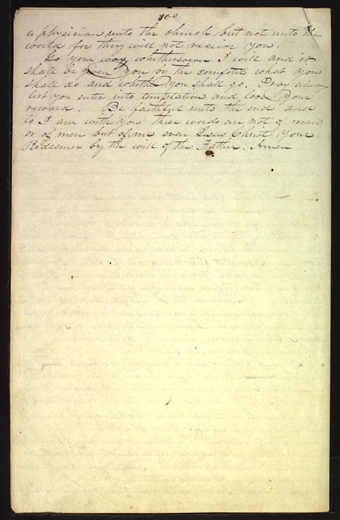 100
a physician unto the church, but not unto the
world for they will not receive you.
Go your way whithersoever I will and it
shall be given you by the comforter what you
shall do and whither you shall go. Pray always
lest you enter into temptation and loose your
reward. Be faithful unto the end and
lo I am with you these words are not of man
or of men but of me even Jesus Christ your
Redeemer by the will of the Father. Amen